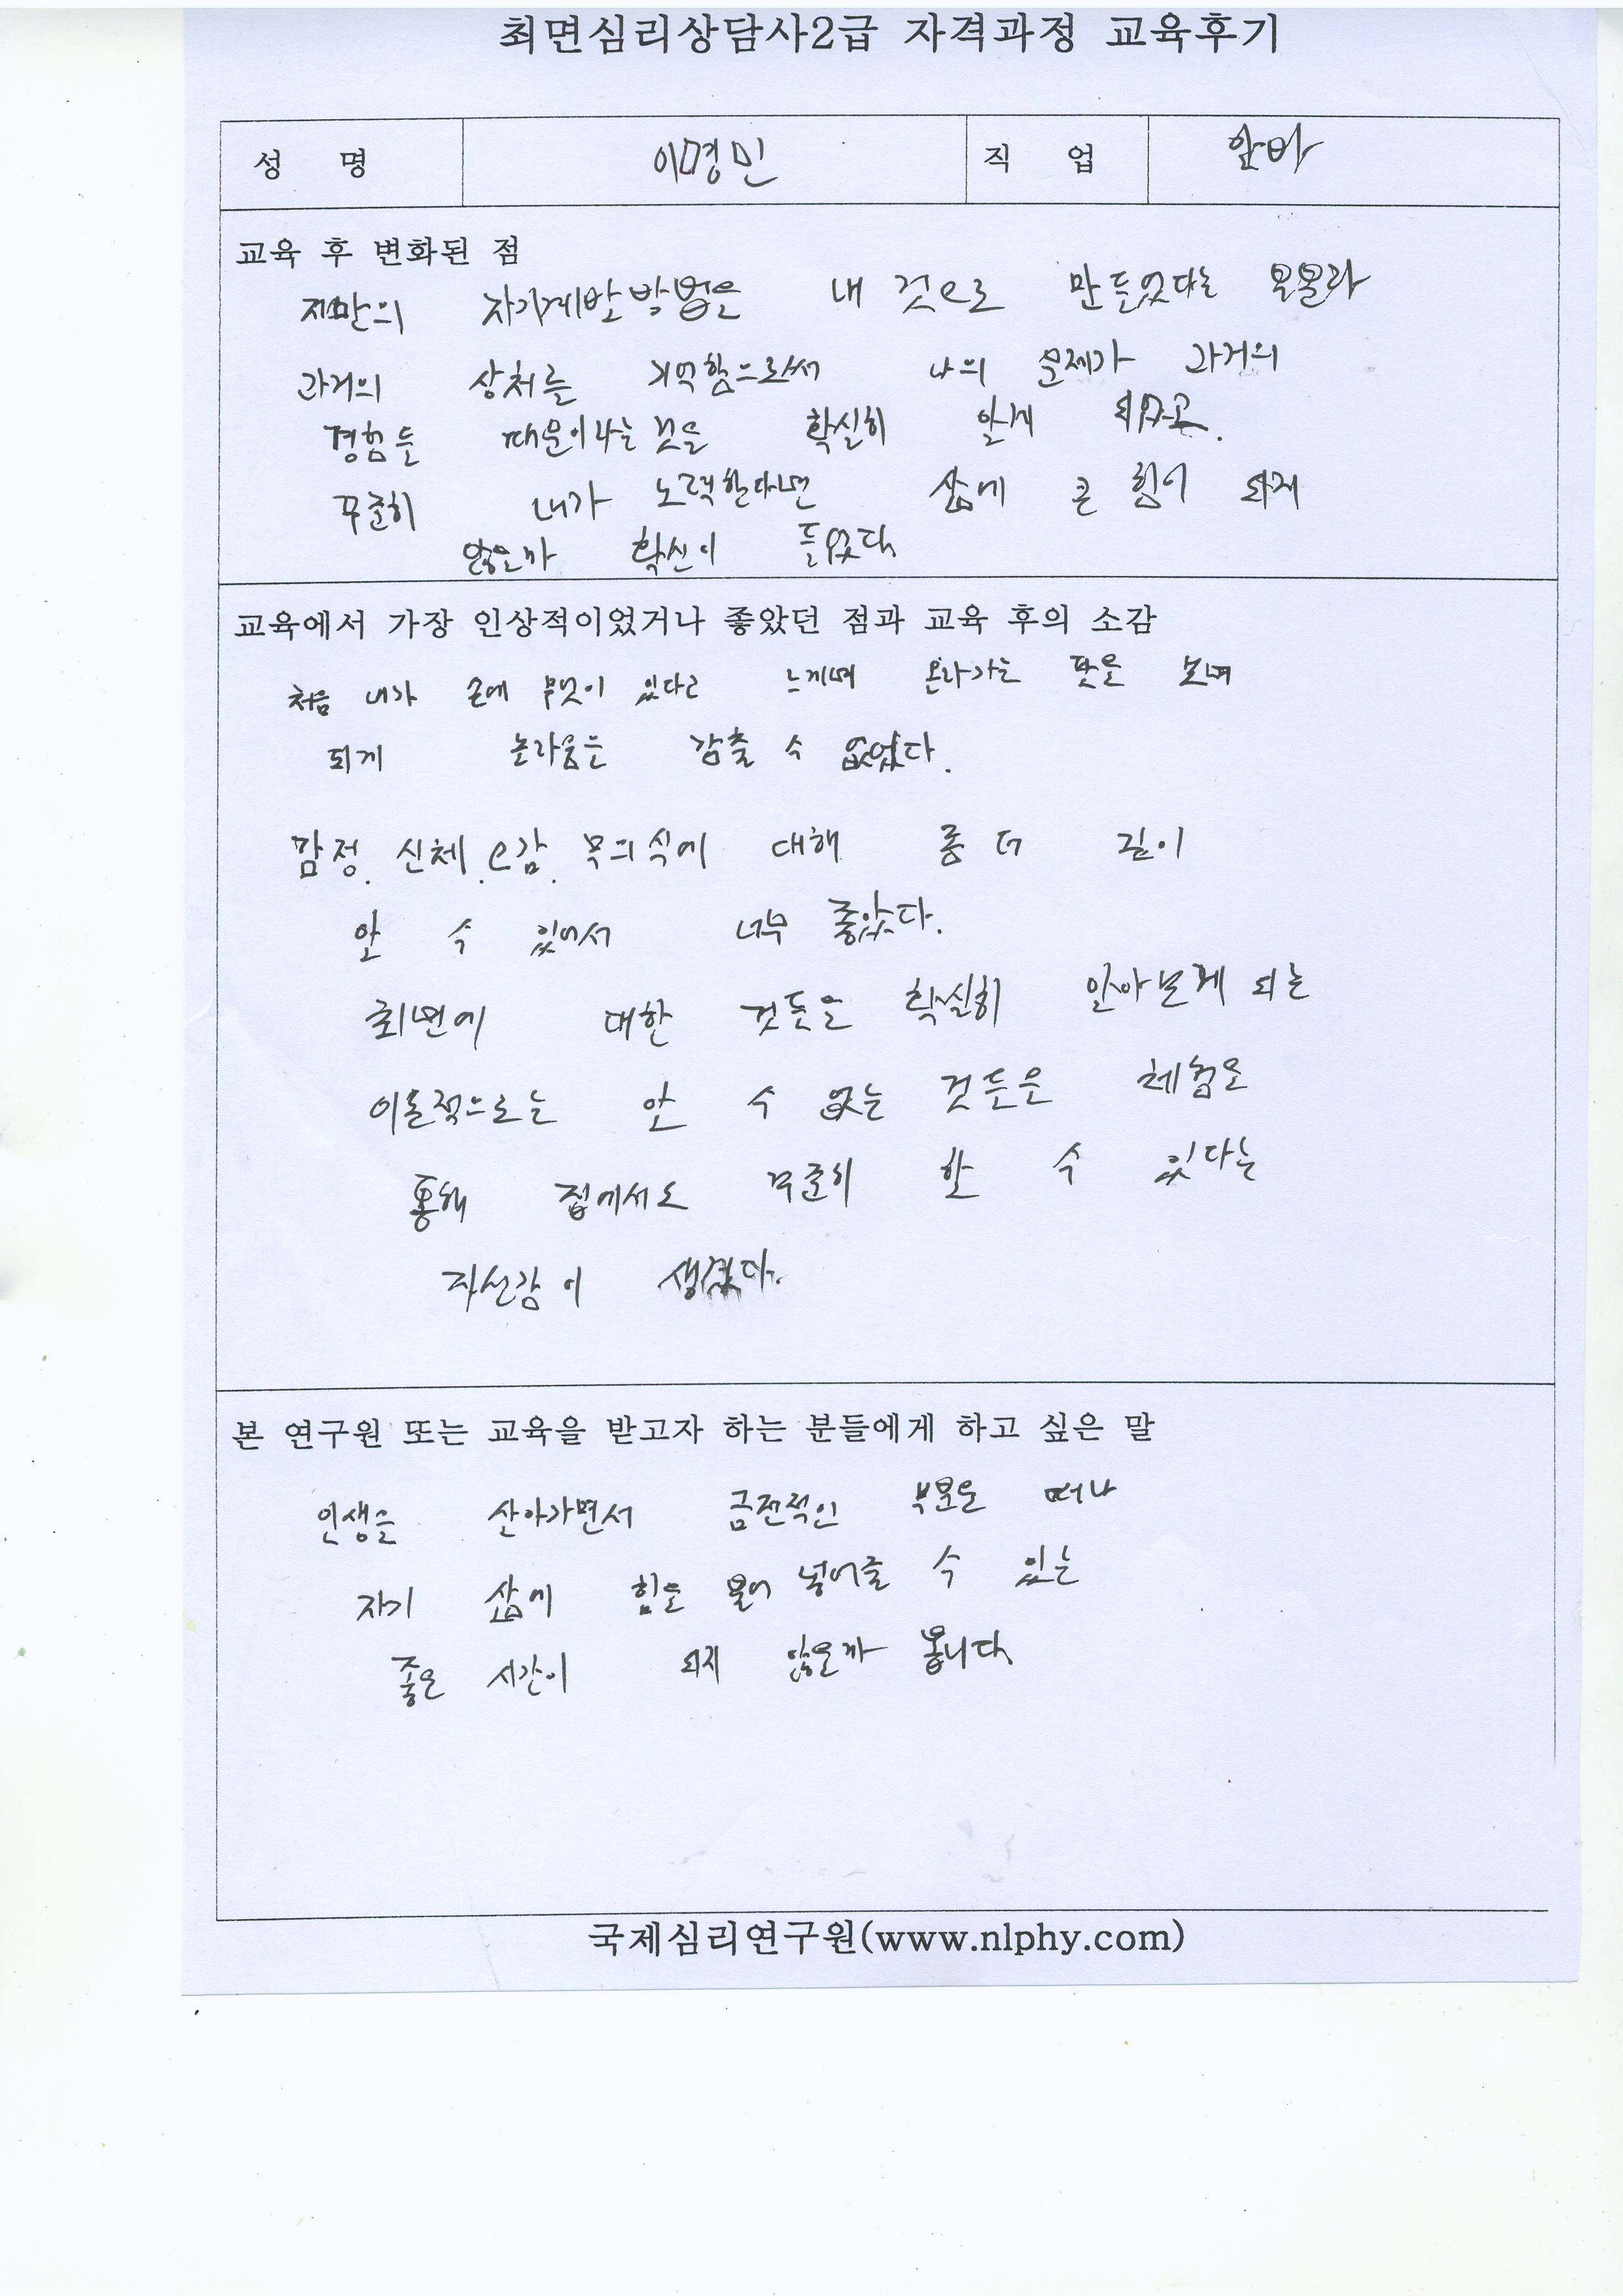 최면심리상담사2급 자격과정 교육후기
성 명 이경민 직 업 알바
교육 후 변화된 점
저만의 자기계발방법을 내 것으로 만들었다는
과거의 상처를 기억함으로써 나의 문제가 과거의
경험들 때문이라는 것을 확실히 알게 되었고.
꾸준히 내가 노력한다면 삶에 큰 힘이 되지
않을까 확신이 들었다.
교육에서 가장 인상적이었거나 좋았던 점과 교육 후의 소감
처음 내가 손에 무엇이 있다고 느끼며 올라가는 팔을 보며
되게 놀라움을 감출 수 없었다.
감정. 신체. 오감. 무의식에 대해 좀 더 깊이
알 수 있어서 너무 좋았다.
최면에 대한 것들을 확실히 알아보게 되는
이론적으로는 알 수 없는 것들을 체험을
통해 집에서도 꾸준히 할 수 있다는
자신감이 생겼다.
본 연구원 또는 교육을 받고자 하는 분들에게 하고 싶은 말
인생을 살아가면서 금전적인 부분을 떠나
자기 삶에 힘을 불어 넣어줄 수 있는
좋은 시간이 되지 않을까 봅니다.
국제심리연구원(www.nlphy.com)